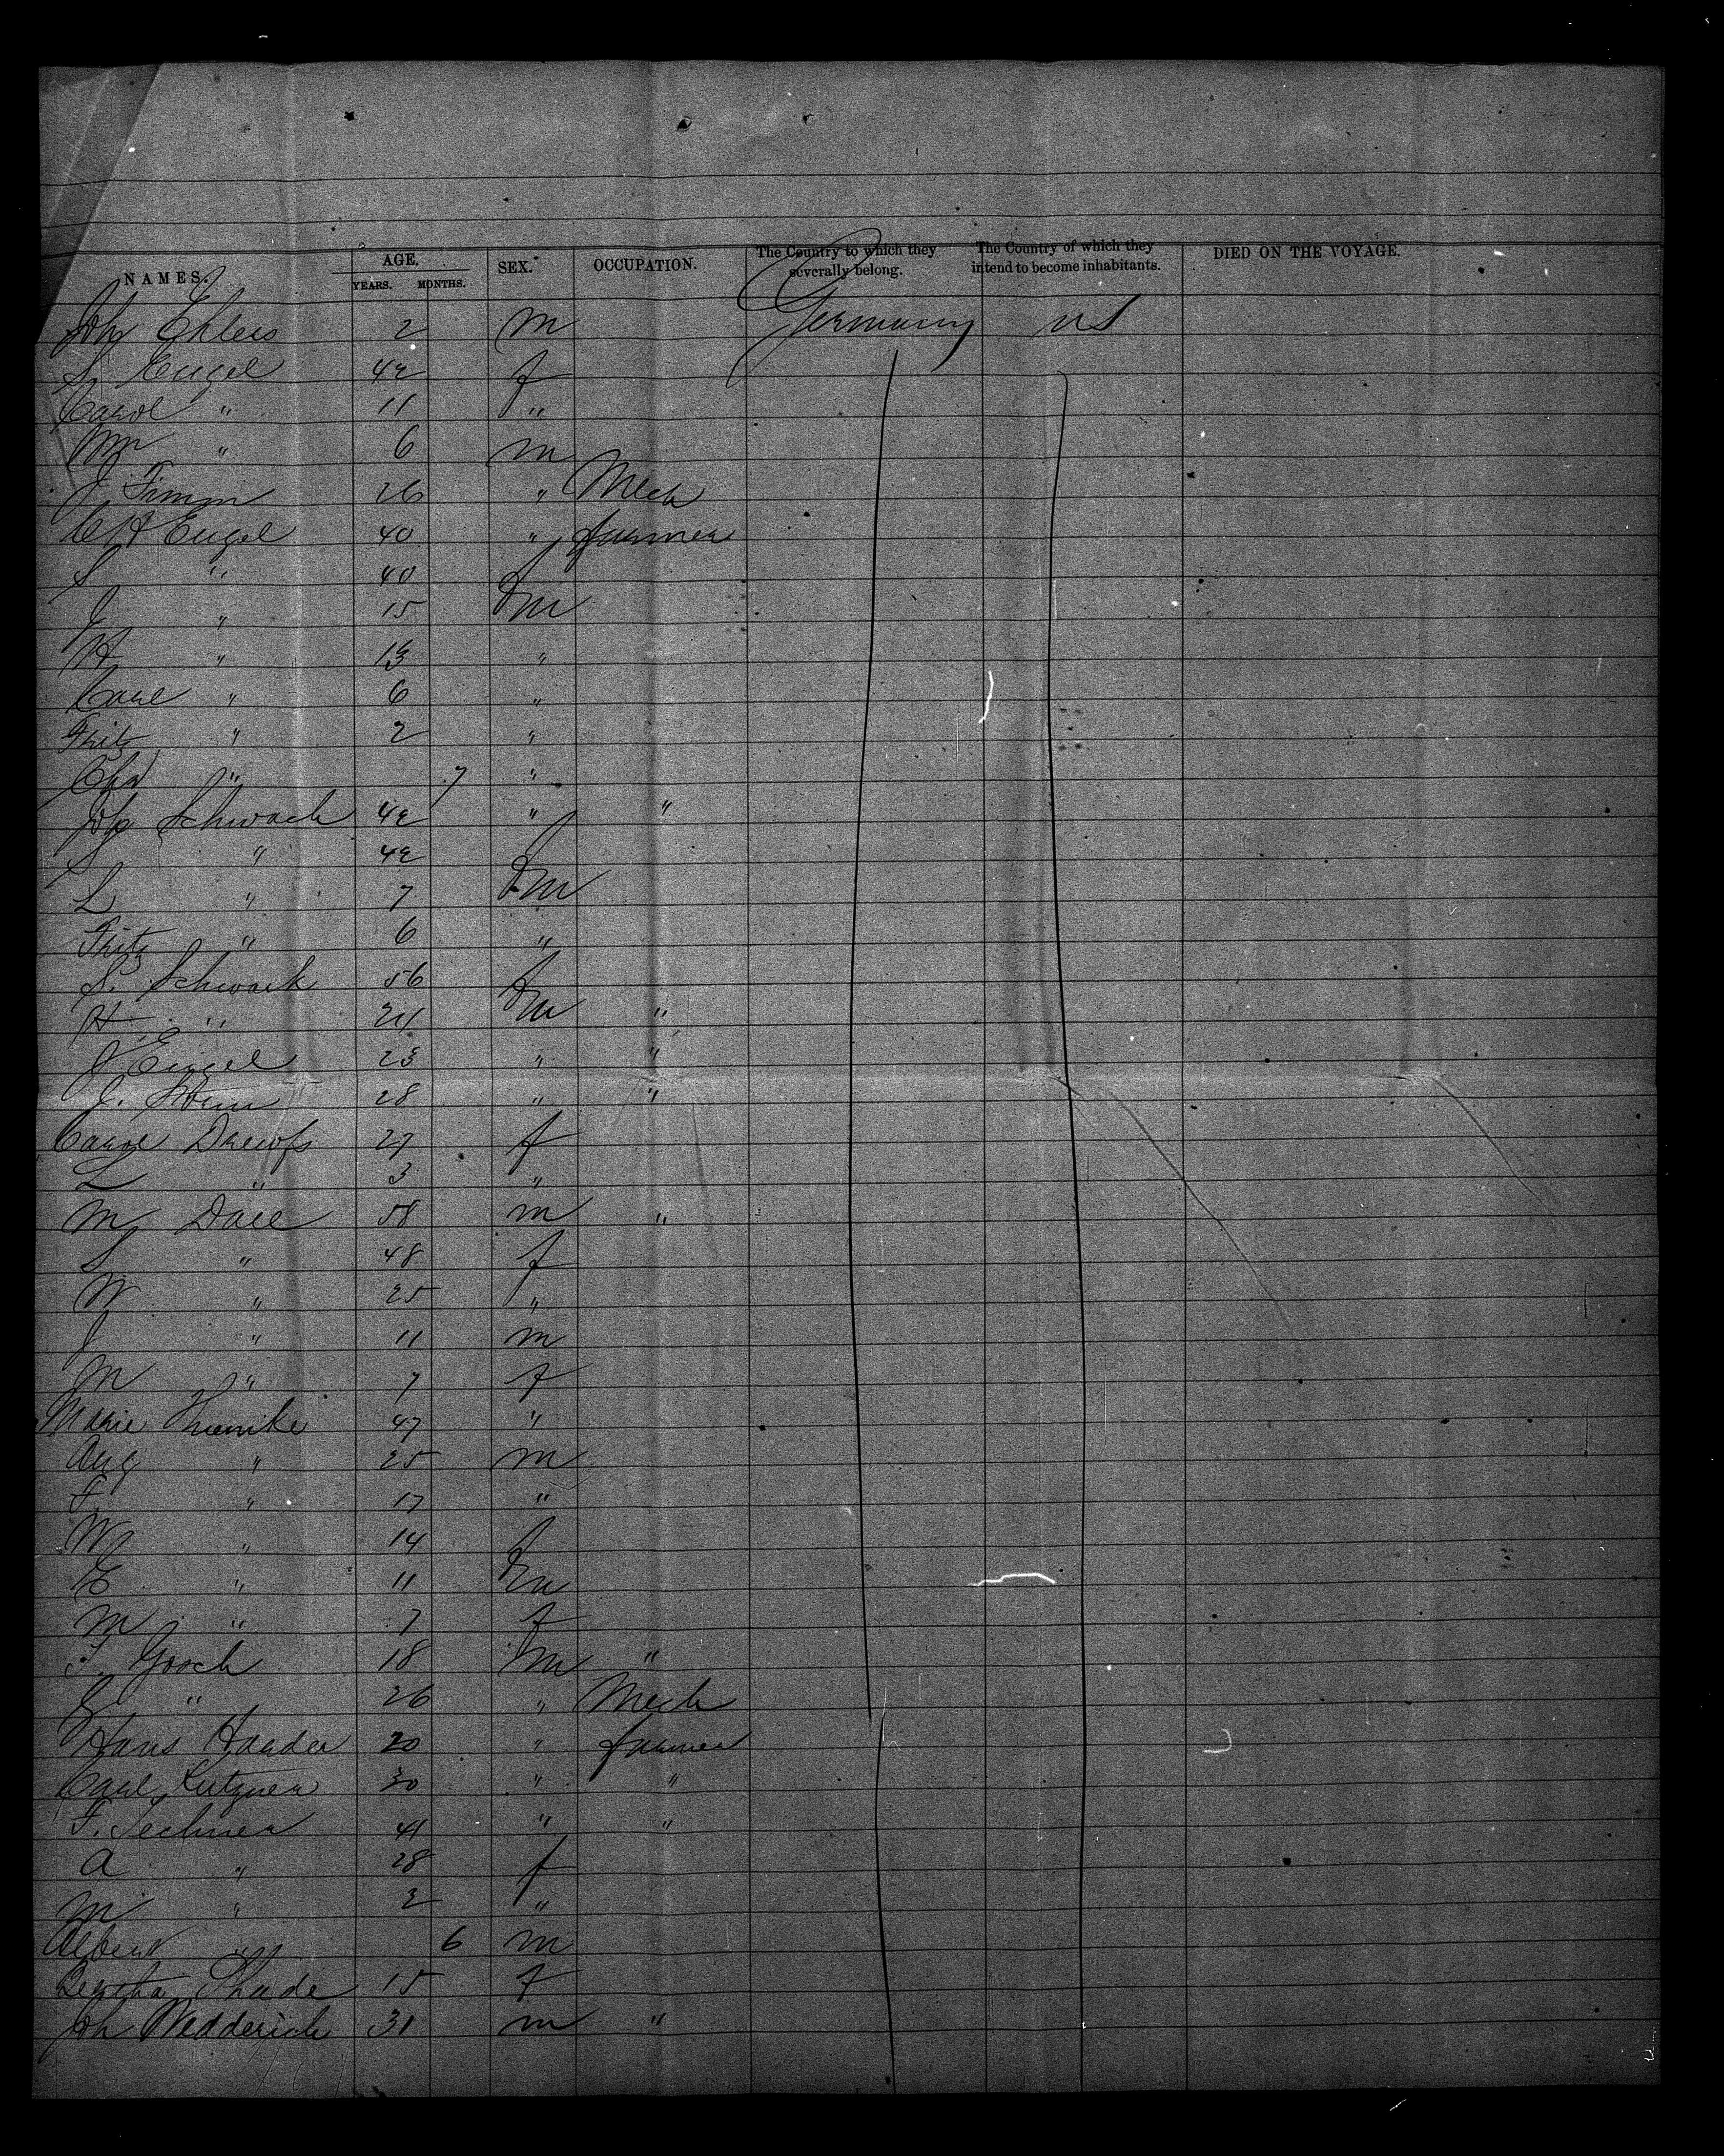 NAMES. AGE. YEARS. MONTHS. SEX. OCCUPATION. The Country to which they severally belong. The Country of which they intend to become inhabitants. DIED ON THE VOYAGE.
Joh Ehlers 2 m Germany US
S. Engel 42 f
Carol " 11 "
Wm " 6 m
J. Timm 26 " Mech
C H Engel 40 " farmer
S " 40 f
J " 15 m
H " 13 "
Carl " 6 "
Fritz " 2 "
Cha " 7 "
Joh Schwack 42 " "
S " 42 f
L " 7 m
Fritz " 6 "
S. Schwark 56 f
H " 21 m "
J Engel 23 " "
J. 28 " "
Carol Drewfs 27 f
L " 3 "
M Dall 58 m "
S " 48 f
W " 25 "
J " 11 m
M " 7 f
Marie 47 "
Aug " 25 m
F " 17 "
W " 14 f
E " 11 m
M " 7 f
F. Gosch 18 m "
J " 26 " Mech
Hans Harder 20 " farmer
Carl 30 " "
F. Lechner 41 " "
A " 28 f
M " 2 "
Albert " 6 m
Bertha Thade 15 f
Joh Wedderich 31 m "